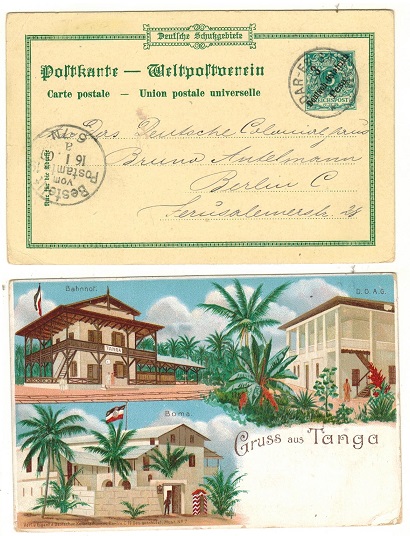 Deutsche Schutzgebiete
Postkarte — Weltpostverein
Carte postale — Union postale universelle
DAR-ES
3
REICHSPOST
Das Deutsche Colonialhaus
Bruno Antelmann
Berlin C
Jerusalemerstr 28
Bestellt
vom
Postamte
16 1
6-7N
Bahnhof.
D.O.A.G.
TANGA
Boma.
Gruss aus Tanga